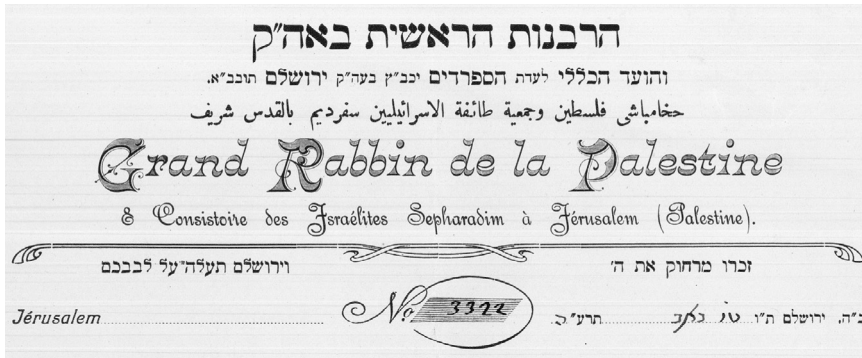 הרבנות הראשית באה״ק
והועד הכללי לעדת הספרדים יכב״ץ בעה״ק ירושלם תובב״א.
حخامباشى فلسطين وجمعية طائفة الاسرائيليين سفرديم بالقدس شريف
Grand Rabbin de la Palestine
& Consistoire des Israélites Sepharadim à Jérusalem (Palestine).
זכרו מרחוק את ה׳ וירושלם תעלה־על לבבכם
ב״ה, ירושלם ת״ו תרע״
No. 3322
Jérusalem